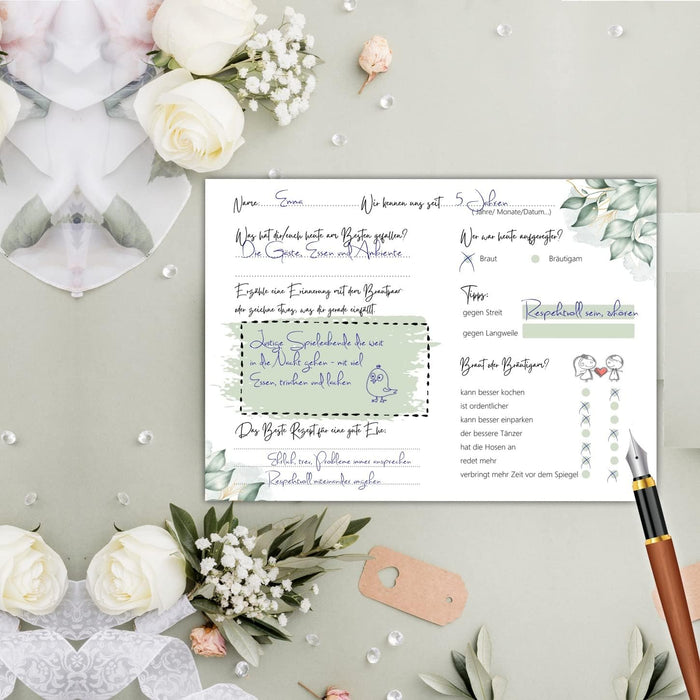 Name: Emma Wir kennen uns seit 5 Jahren
(Jahre/ Monate/Datum...)
Was hat dir/euch heute am Besten gefallen?
Die Gäste, Essen und Ambiente
Erzähle eine Erinnerung mit dem Brautpaar
oder zeichne etwas, was dir gerade einfällt.
Lustige Spieleabende die weit
in die Nacht gehen - mit viel
Essen, trinken und lachen
Das Beste Rezept für eine gute Ehe:
Ehrlich, treu, Probleme immer ansprechen
Respektvoll miteinander umgehen
Wer war heute aufgeregter?
Braut Bräutigam
Tipps:
gegen Streit Respektvoll sein, zuhören
gegen Langweile
Braut oder Bräutigam?
kann besser kochen
ist ordentlicher
kann besser einparken
der bessere Tänzer
hat die Hosen an
redet mehr
verbringt mehr Zeit vor dem Spiegel